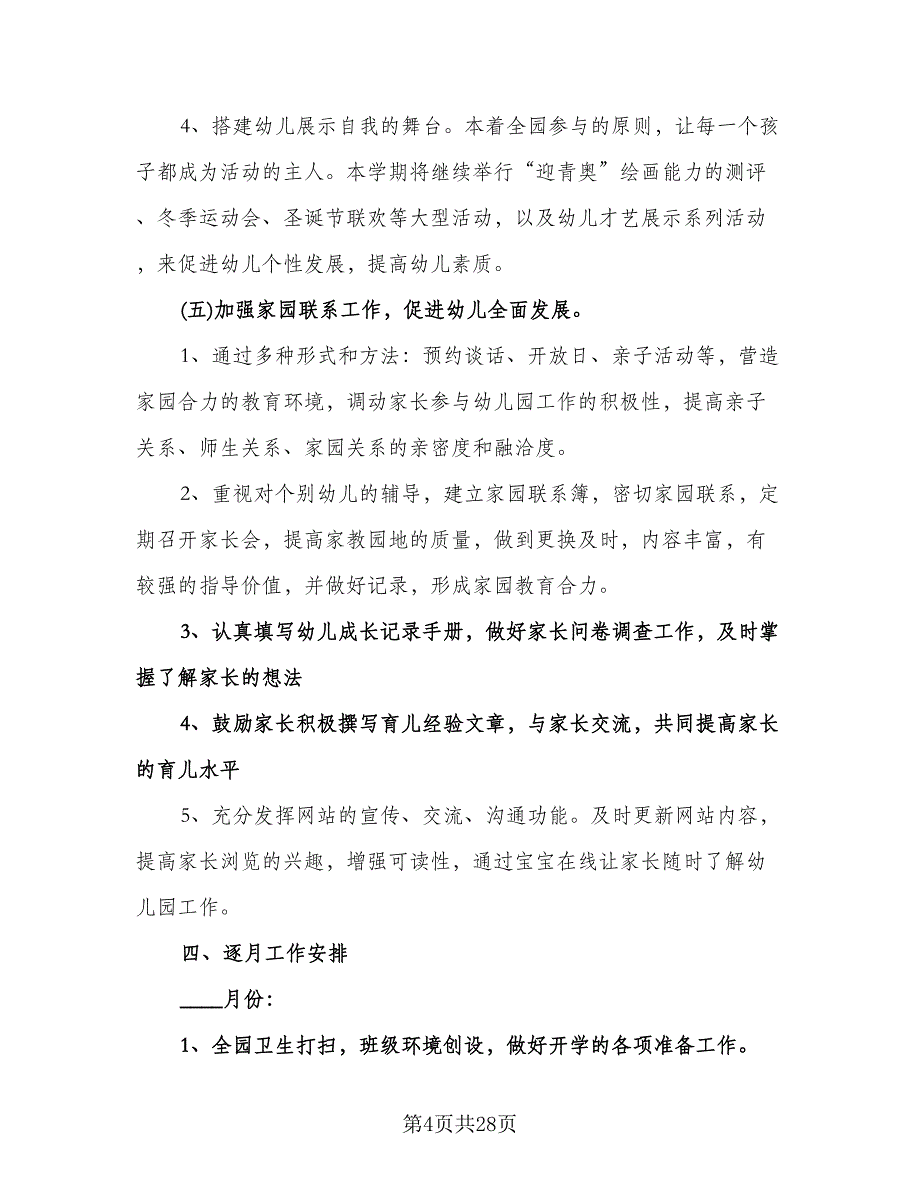 4、搭建幼儿展示自我的舞台。本着全园参与的原则，让每一个孩
子都成为活动的主人。本学期将继续举行“迎青奥”绘画能力的测评
、冬季运动会、圣诞节联欢等大型活动，以及幼儿才艺展示系列活动
，来促进幼儿个性发展，提高幼儿素质。
(五)加强家园联系工作，促进幼儿全面发展。
1、通过多种形式和方法：预约谈话、开放日、亲子活动等，营造
家园合力的教育环境，调动家长参与幼儿园工作的积极性，提高亲子
关系、师生关系、家园关系的亲密度和融洽度。
2、重视对个别幼儿的辅导，建立家园联系簿，密切家园联系，定
期召开家长会，提高家教园地的质量，做到更换及时，内容丰富，有
较强的指导价值，并做好记录，形成家园教育合力。
3、认真填写幼儿成长记录手册，做好家长问卷调查工作，及时掌
握了解家长的想法
4、鼓励家长积极撰写育儿经验文章，与家长交流，共同提高家长
的育儿水平
5、充分发挥网站的宣传、交流、沟通功能。及时更新网站内容，
提高家长浏览的兴趣，增强可读性，通过宝宝在线让家长随时了解幼
儿园工作。
四、逐月工作安排
____月份：
1、全园卫生打扫，班级环境创设，做好开学的各项准备工作。
第4页共28页